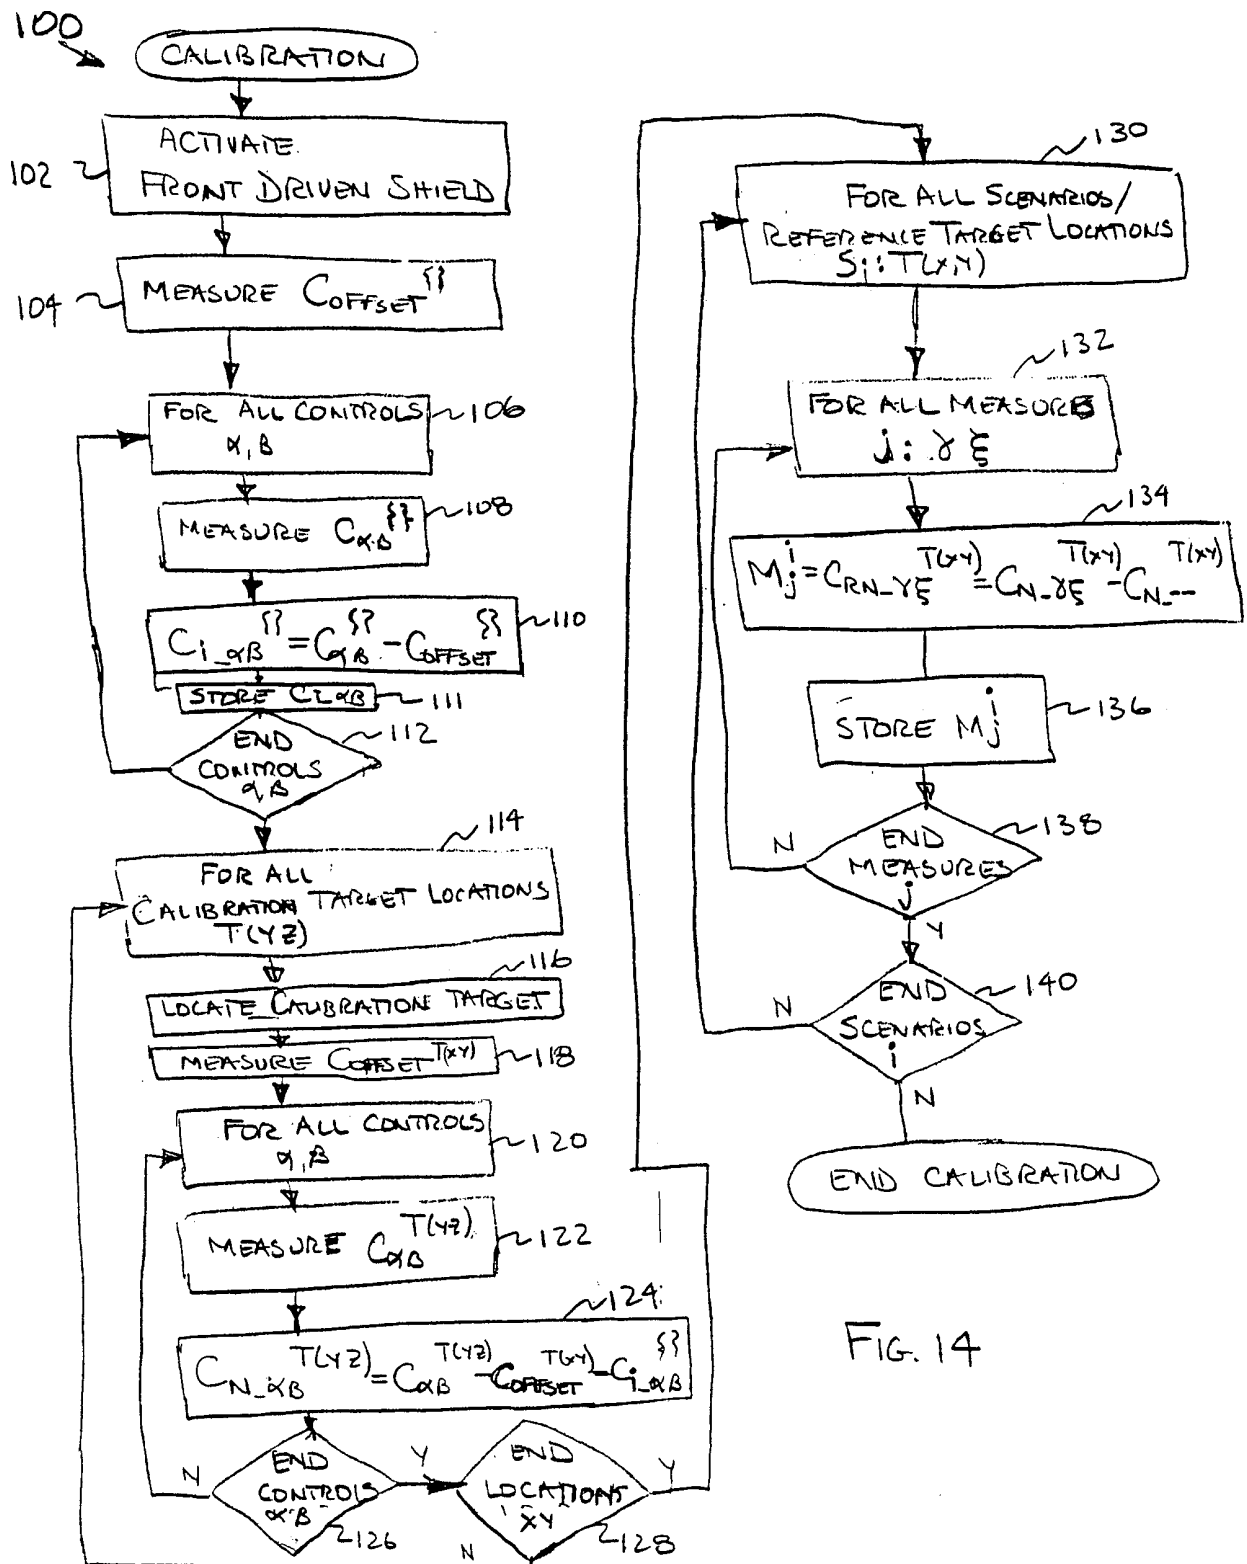 100
CALIBRATION
ACTIVATE
FRONT DRIVEN SHIELD
102
MEASURE C_OFFSET^{}
104
FOR ALL CONTROLS
α, β
106
MEASURE C_αβ^{}
108
C_i_αβ^{} = C_αβ^{} - C_OFFSET^{}
110
STORE Ci_αβ
111
END
CONTROLS
α, β
112
114
FOR ALL
CALIBRATION TARGET LOCATIONS
T(YZ)
116
LOCATE CALIBRATION TARGET
MEASURE C_OFFSET^T(XY)
118
FOR ALL CONTROLS
α, β
120
MEASURE C_αβ^T(YZ)
122
124
C_N_αβ^T(YZ) = C_αβ^T(YZ) - C_OFFSET^T(XY) - C_i_αβ^{}
END
CONTROLS
αβ
126
N
Y
END
LOCATIONS
XY
128
N
Y
130
FOR ALL SCENARIOS/
REFERENCE TARGET LOCATIONS
Si: T(X,Y)
132
FOR ALL MEASURES
j: γ ξ
134
M_j^i = C_RN_γξ^T(XY) = C_N_γξ^T(XY) - C_N_--^T(XY)
STORE M_j^i
136
END
MEASURES
j
138
N
Y
END
SCENARIOS
i
140
N
N
END CALIBRATION
FIG. 14